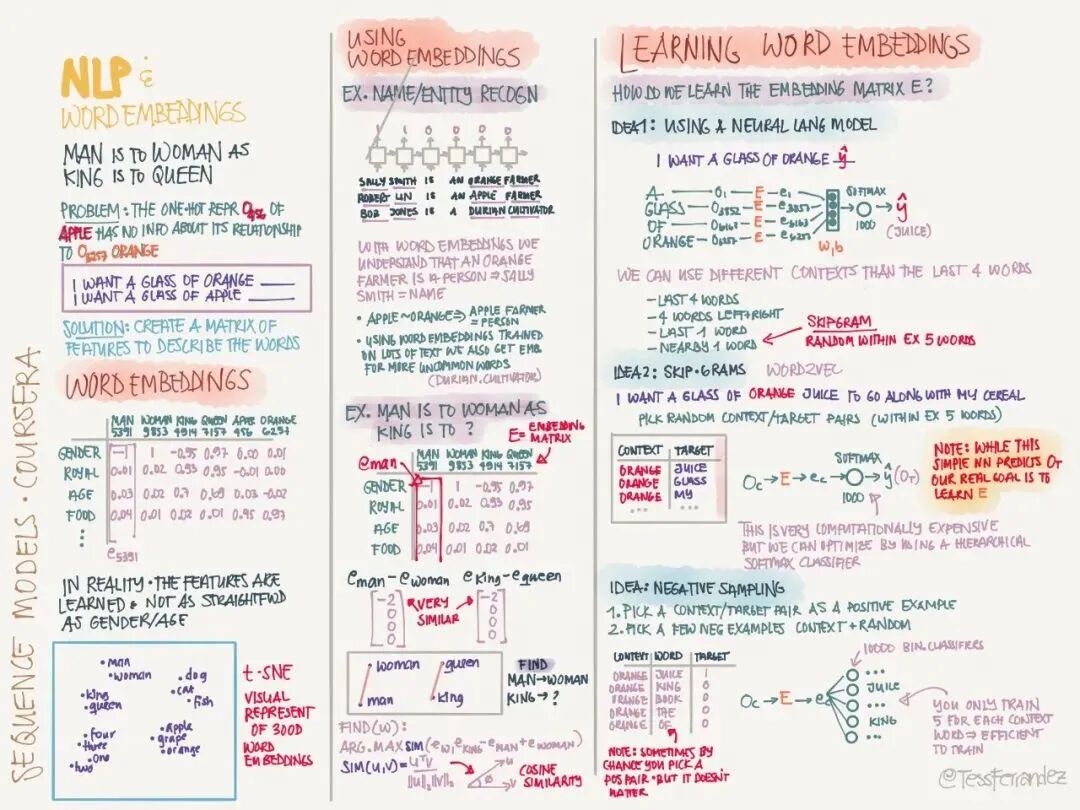 NLP &
WORD EMBEDDINGS
MAN IS TO WOMAN AS
KING IS TO QUEEN
PROBLEM: THE ONE-HOT REPR O456 OF
APPLE HAS NO INFO ABOUT ITS RELATIONSHIP
TO O6257 ORANGE
I WANT A GLASS OF ORANGE ____
I WANT A GLASS OF APPLE ____
SOLUTION: CREATE A MATRIX OF
FEATURES TO DESCRIBE THE WORDS
WORD EMBEDDINGS
MAN WOMAN KING QUEEN APPLE ORANGE
5391 9853 4914 7157 456 6257
GENDER -1 1 -0.95 0.97 0.00 0.01
ROYAL 0.01 0.02 0.93 0.95 -0.01 0.00
AGE 0.03 0.02 0.7 0.69 0.03 -0.02
FOOD 0.04 0.01 0.02 0.01 0.95 0.97
e5391
IN REALITY • THE FEATURES ARE
LEARNED & NOT AS STRAIGHTFWD
AS GENDER/AGE
• man
• woman
• dog
• cat
• fish
• king
• queen
• four
• three
• one
• two
• apple
• grape
• orange
t-SNE
VISUAL
REPRESENT
OF 300D
WORD
EMBEDDINGS
SEQUENCE MODELS • COURSERA
USING
WORD EMBEDDINGS
EX. NAME/ENTITY RECOGN
1 1 0 0 0 0
SALLY SMITH IS AN ORANGE FARMER
ROBERT LIN IS AN APPLE FARMER
BOB JONES IS A DURIAN CULTIVATOR
WITH WORD EMBEDDINGS WE
UNDERSTAND THAT AN ORANGE
FARMER IS A PERSON ⇒ SALLY
SMITH = NAME
• APPLE ~ ORANGE ⇒ APPLE FARMER
= PERSON
• USING WORD EMBEDDINGS TRAINED
ON LOTS OF TEXT WE ALSO GET EMB.
FOR MORE UNCOMMON WORDS
(DURIAN, CULTIVATOR)
EX. MAN IS TO WOMAN AS
KING IS TO ?
E = EMBEDDING
MATRIX
eman
MAN WOMAN KING QUEEN
5391 9853 4914 7157
GENDER -1 1 -0.95 0.97
ROYAL 0.01 0.02 0.93 0.95
AGE 0.03 0.02 0.7 0.69
FOOD 0.04 0.01 0.02 0.01
eman - ewoman eking - equeen
-2 -2
0 0
0 0
0 0
VERY
SIMILAR
woman
man
queen
king
FIND
MAN → WOMAN
KING → ?
FIND(W):
ARG.MAX SIM(ew, eking - eman + ewoman)
SIM(U,V) = UᵀV
||U||₂||V||₂
u
v
φ
COSINE
SIMILARITY
LEARNING WORD EMBEDDINGS
HOW DO WE LEARN THE EMBEDDING MATRIX E?
IDEA1: USING A NEURAL LANG MODEL
I WANT A GLASS OF ORANGE ŷ
A — O1 — E — e1
GLASS — O3852 — E — e3852
OF — O6163 — E — e6163
ORANGE — O6257 — E — e6257
W,b
SOFTMAX
1000
ŷ
(JUICE)
WE CAN USE DIFFERENT CONTEXTS THAN THE LAST 4 WORDS
- LAST 4 WORDS
- 4 WORDS LEFT+RIGHT
- LAST 1 WORD
- NEARBY 1 WORD
SKIPGRAM
RANDOM WITHIN EX 5 WORDS
IDEA2: SKIP-GRAMS WORD2VEC
I WANT A GLASS OF ORANGE JUICE TO GO ALONG WITH MY CEREAL
PICK RANDOM CONTEXT/TARGET PAIRS (WITHIN EX 5 WORDS)
CONTEXT TARGET
ORANGE JUICE
ORANGE GLASS
ORANGE MY
... ...
Oc → E → ec → ŷ (OT)
SOFTMAX
1000
NOTE: WHILE THIS
SIMPLE NN PREDICTS OT
OUR REAL GOAL IS TO
LEARN E
THIS IS VERY COMPUTATIONALLY EXPENSIVE
BUT WE CAN OPTIMIZE BY USING A HIERARCHICAL
SOFTMAX CLASSIFIER
IDEA: NEGATIVE SAMPLING
1. PICK A CONTEXT/TARGET PAIR AS A POSITIVE EXAMPLE
2. PICK A FEW NEG EXAMPLES CONTEXT + RANDOM
CONTEXT WORD TARGET
ORANGE JUICE 1
ORANGE KING 0
ORANGE BOOK 0
ORANGE THE 0
ORANGE OF 0
NOTE: SOMETIMES BY
CHANCE YOU PICK A
POS PAIR • BUT IT DOESN'T
MATTER
Oc → E → ec
10000 BIN.CLASSIFIERS
...
JUICE
...
KING
...
YOU ONLY TRAIN
5 FOR EACH CONTEXT
WORD ⇒ EFFICIENT
TO TRAIN
@TessFerrandez